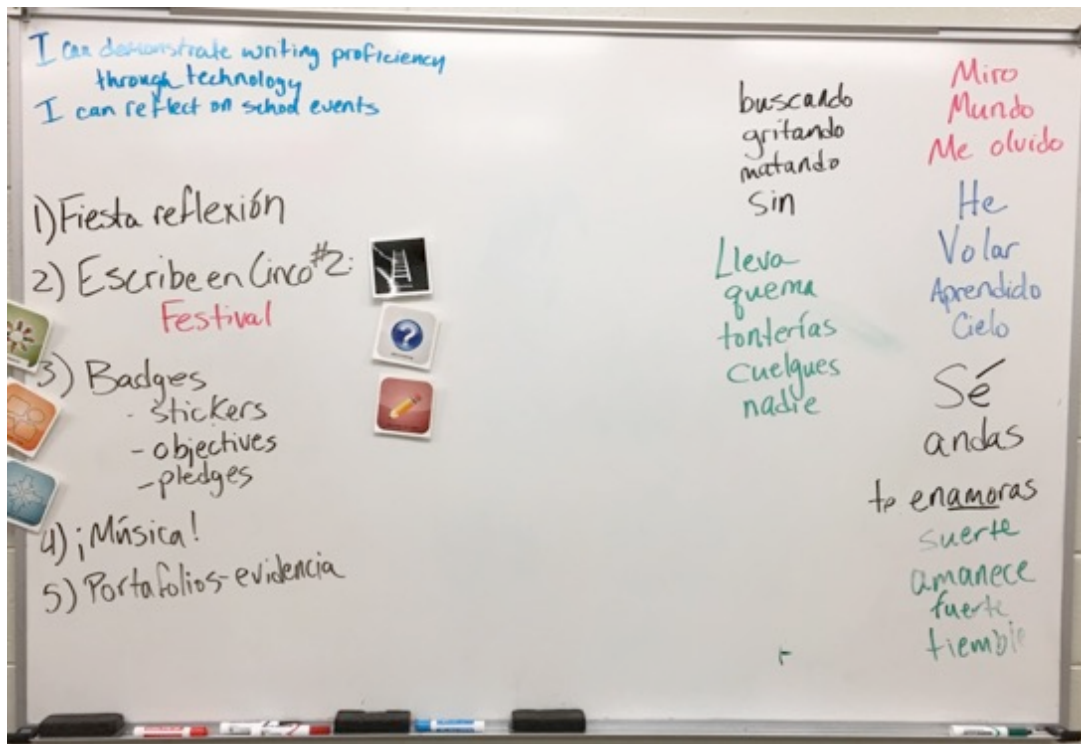 I can demonstrate writing proficiency
through technology
I can reflect on school events
1) Fiesta reflexión
2) Escribe en Cinco #2:
Festival
3) Badges
- stickers
- objectives
- pledges
4) ¡Música!
5) Portafolios-evidencia
buscando
gritando
matando
sin
Lleva
quema
tonterías
cuelgues
nadie
Miro
Mundo
Me olvido
He
Volar
Aprendido
Cielo
Sé
andas
te enamoras
suerte
amanece
fuerte
tiemble